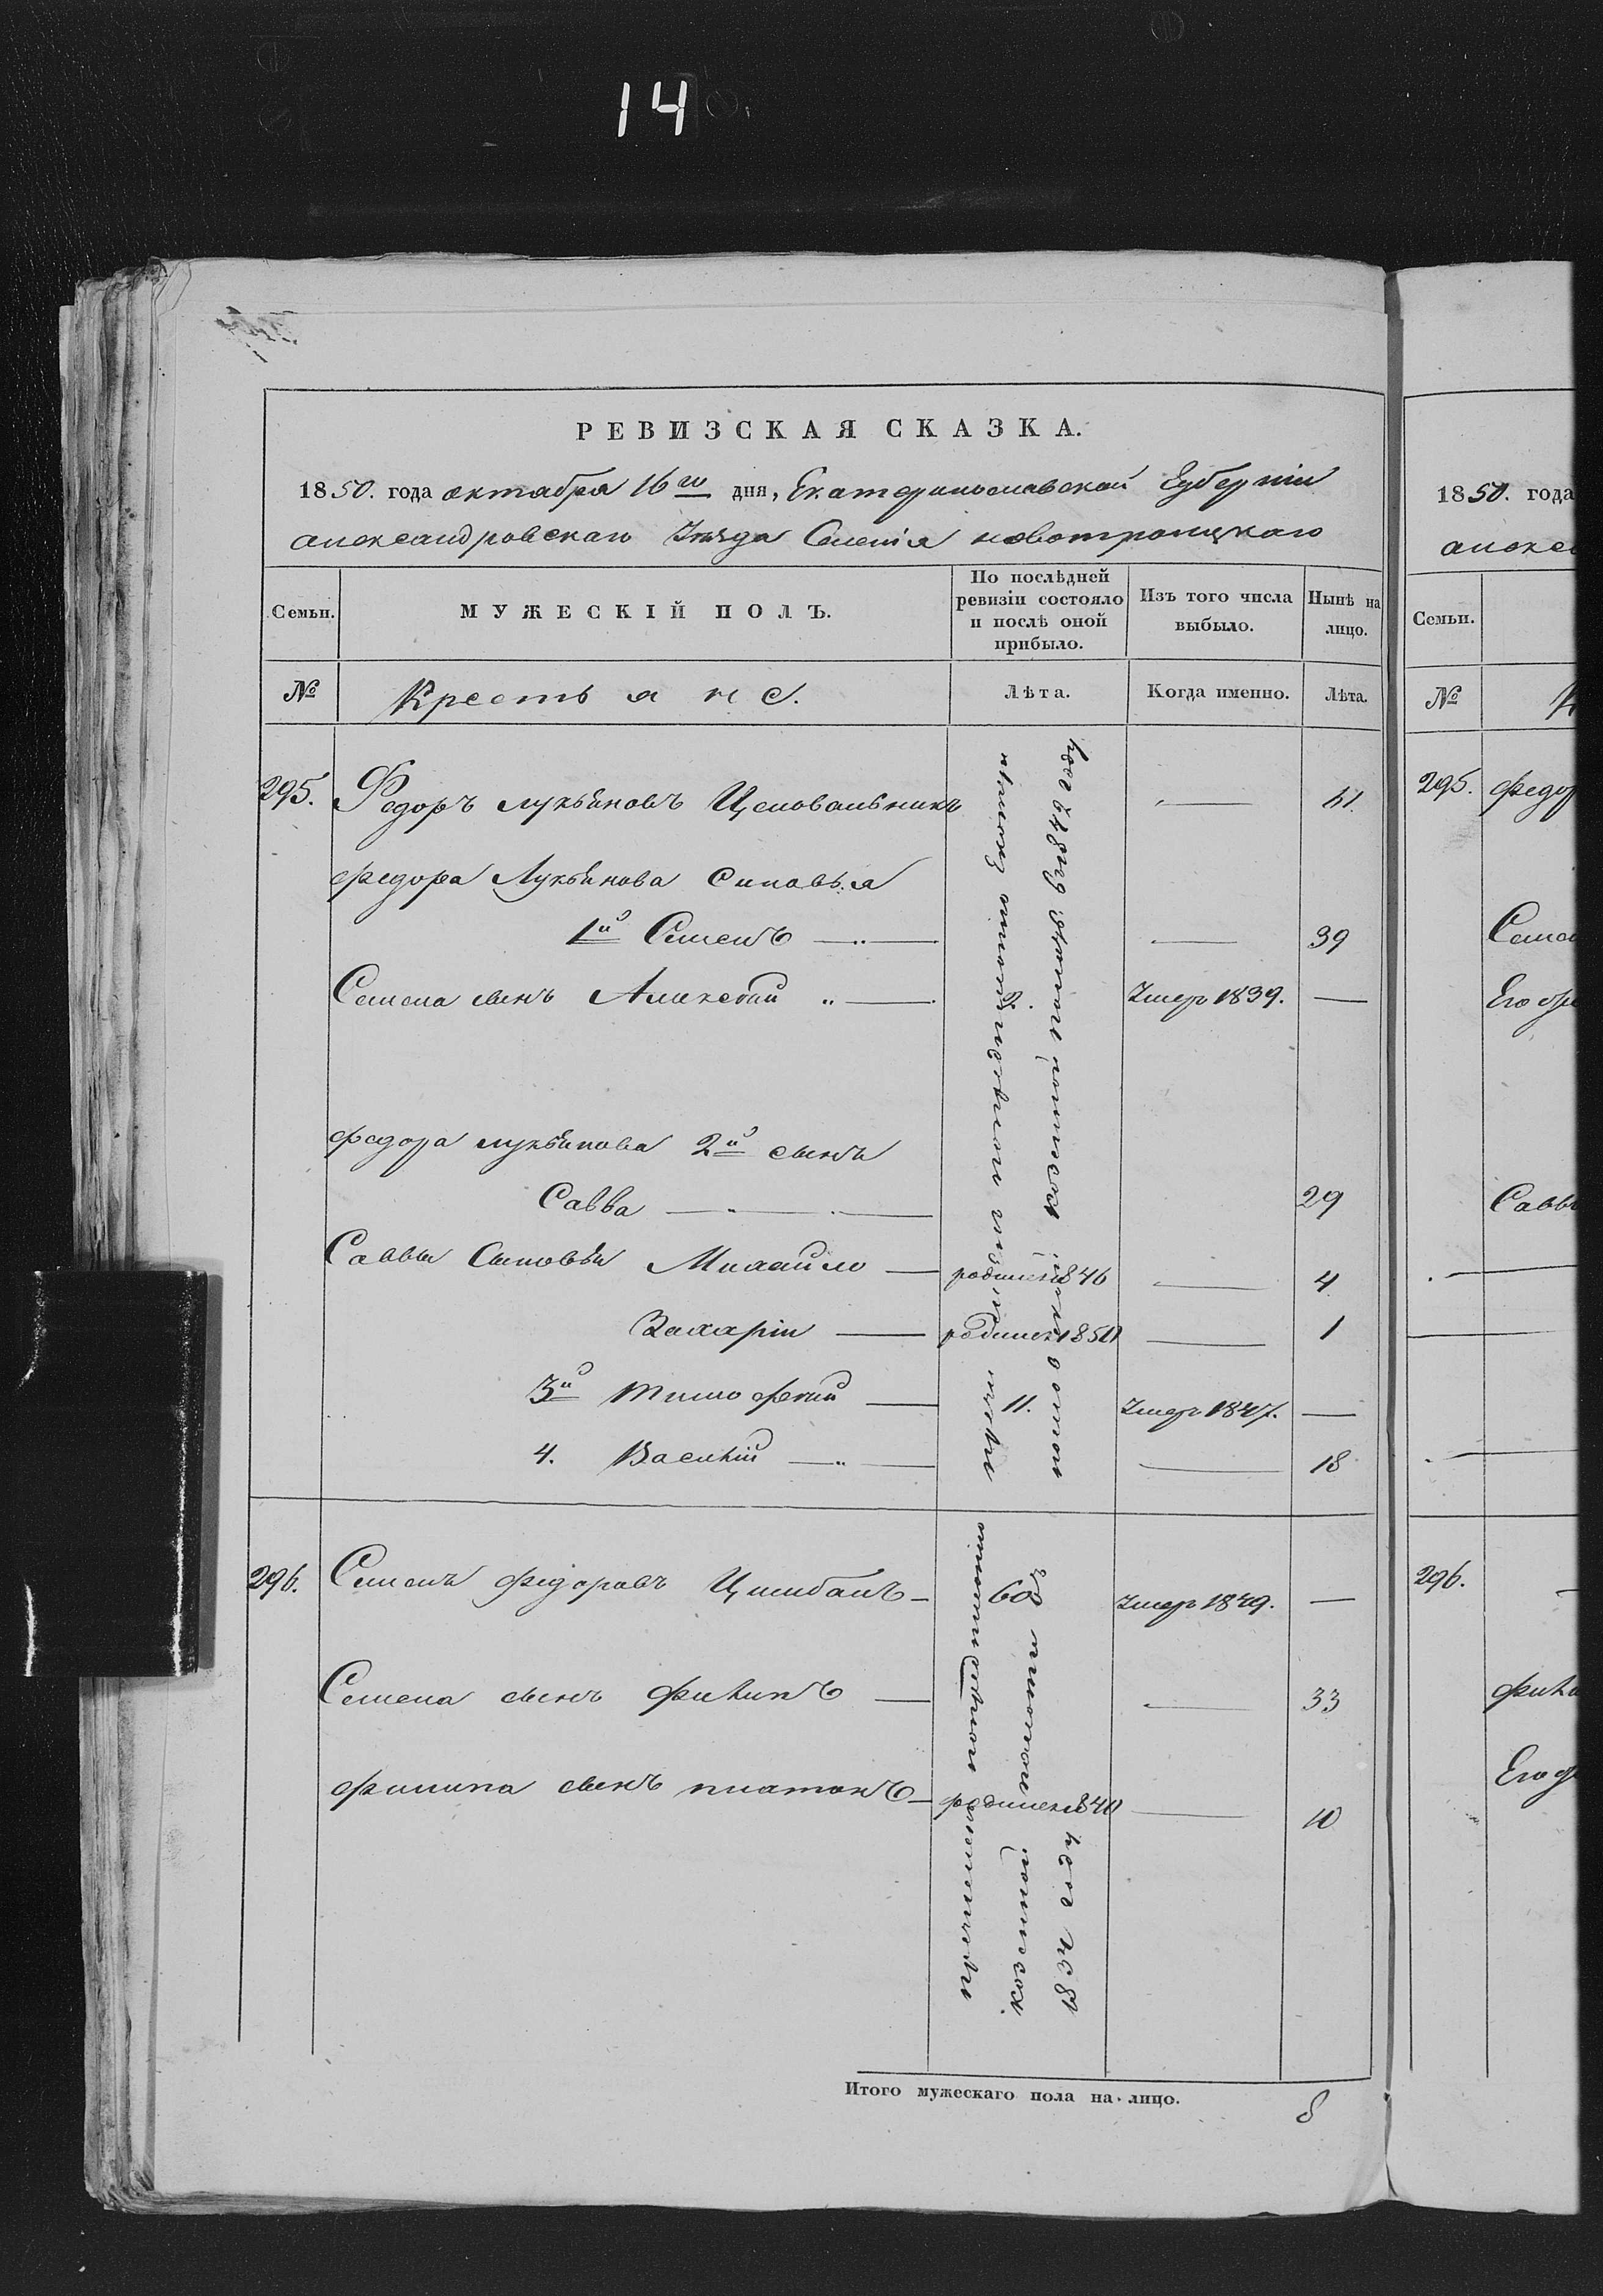 14
РЕВИЗСКАЯ СКАЗКА.
1850. года октября 16го дня, Екатеринославской Губерніи
александровскаго Уезда Селенія новотроицкаго
Семьи.
МУЖЕСКІЙ ПОЛЪ.
По послѣдней ревизіи состояло и послѣ оной прибыло.
Изъ того числа выбыло.
Нынѣ на лицо.
№ Крестьяне.
Лѣта. Когда именно. Лѣта.
295. Федоръ лукьяновъ Целовальникъ — 61.
федора Лукьянова Синовья
1й Семенъ — — 39
Семена сынъ Алексѣй 2. Умеръ 1839. —
федора лукьянова 2й сынъ
Савва — 29
Саввы Сыновья Михайло — родился 1846 — 4
Захарій — родился 1850 — 1
3й тимофей — 11. Умеръ 1847. —
4. Василій — — 18
козенной полаты 1842 году
296. Семенъ федоровъ Цимбалъ — 60 Умеръ 1849. —
Семена сынъ филипъ — — 33
филипа сынъ платонъ — родился 1840 — 10
причисленъ
козенной полаты
183 году
Итого мужескаго пола на лицо. 8
1850. года
алексе
Семьи.
№ К
295. федор
Семен
Его
Саввы
296. —
фили
Его